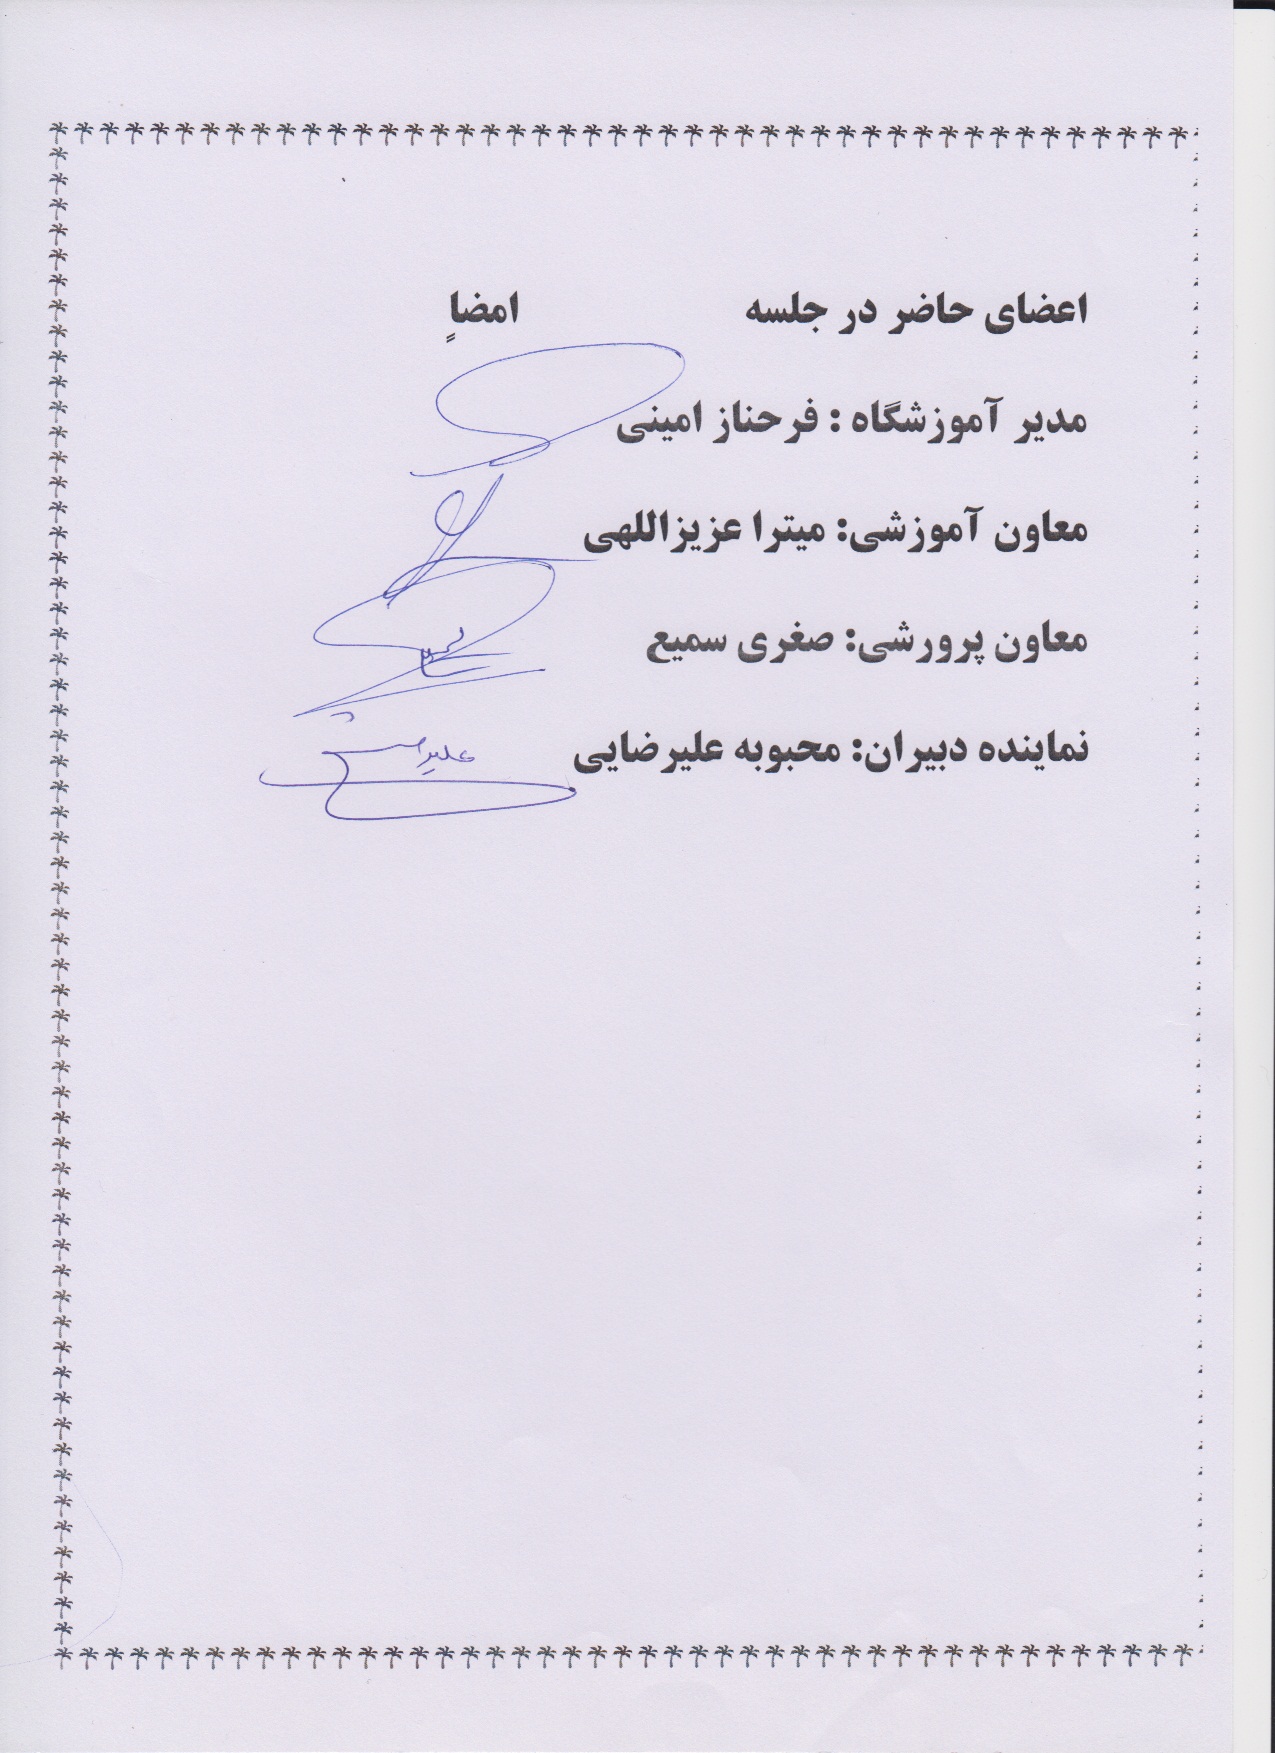 اعضای حاضر در جلسه امضاٍ
مدیر آموزشگاه : فرحناز امینی
معاون آموزشی: میترا عزیزاللهی
معاون پرورشی: صغری سمیع
نماینده دبیران: محبوبه علیرضایی